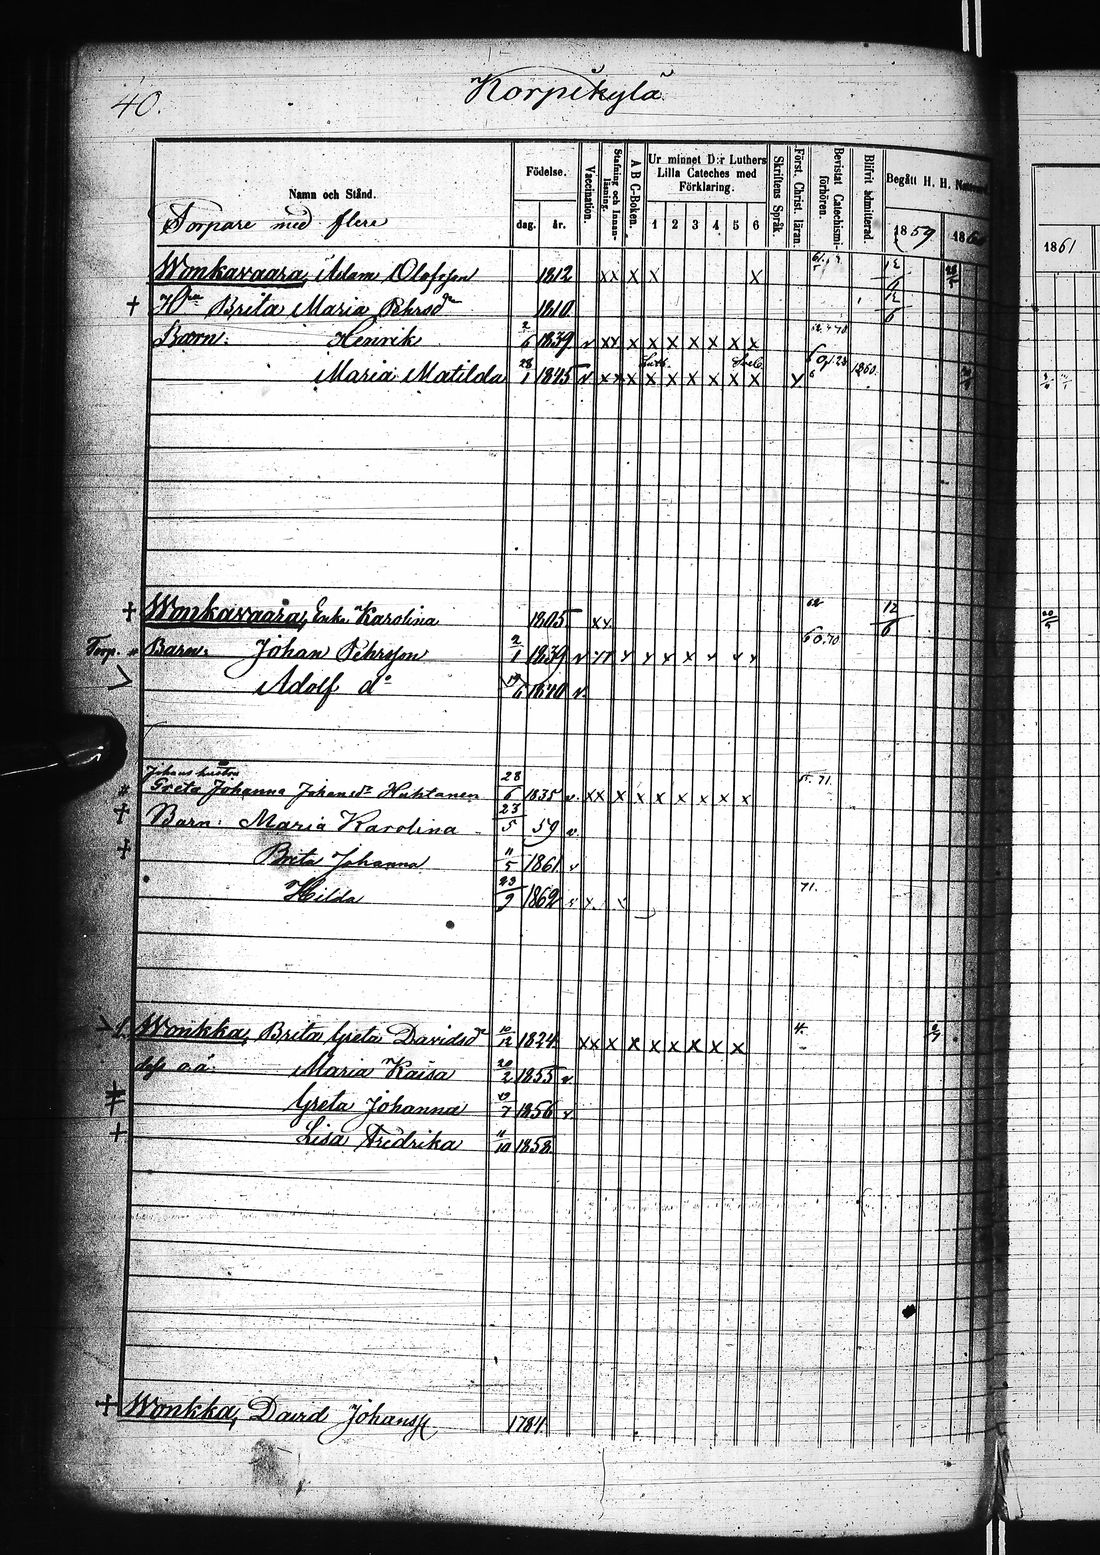 40.
Korpikylä
Namn och Stånd.
Födelse.
dag. år.
Vaccination.
Stafning och Innan-läsning.
A B C-Boken.
Ur minnet D:r Luthers Lilla Cateches med Förklaring.
1 2 3 4 5 6
Skriftens Språk.
Först. Christ. läran.
Bevistat Catechismi-förhören.
Blifvit admitterad.
Begått H. H.
1859 1860
1861
Torpare med flere
Wonkavaara, Adam Olofsson 1812 xx x x x
+ Hu Brita Maria Pehrsdr 1810
Barn: Henrik 2/6 1839 v xx x x x x x x x
Maria Matilda 28/1 1845 v xxx x x x x x x 1860.
+ Wonkavaara, Enka Karolina 1805 xx 62 12/6
Torp. " Barn: Johan Pehrsson 2/1 1839 v
Adolf do 1840 v
Johans hustru
" Greta Johanna Johansdr Huhtanen 28/6 1835 v xx x x x x x x x
+ Barn: Maria Karolina 23/5 59 v
+ Brita Johanna 11/5 1861 v
Hilda 23/9 1862 71.
Wonkka, Brita Greta Davidsdr 10/12 1824 xx x x x x x x x
dess o.ä: Maria Kaisa 20/2 1855 v
Greta Johanna 19/7 1856 v
+ Lisa Fredrika 11/10 1858.
+ Wonkka, David Johanss 1784.